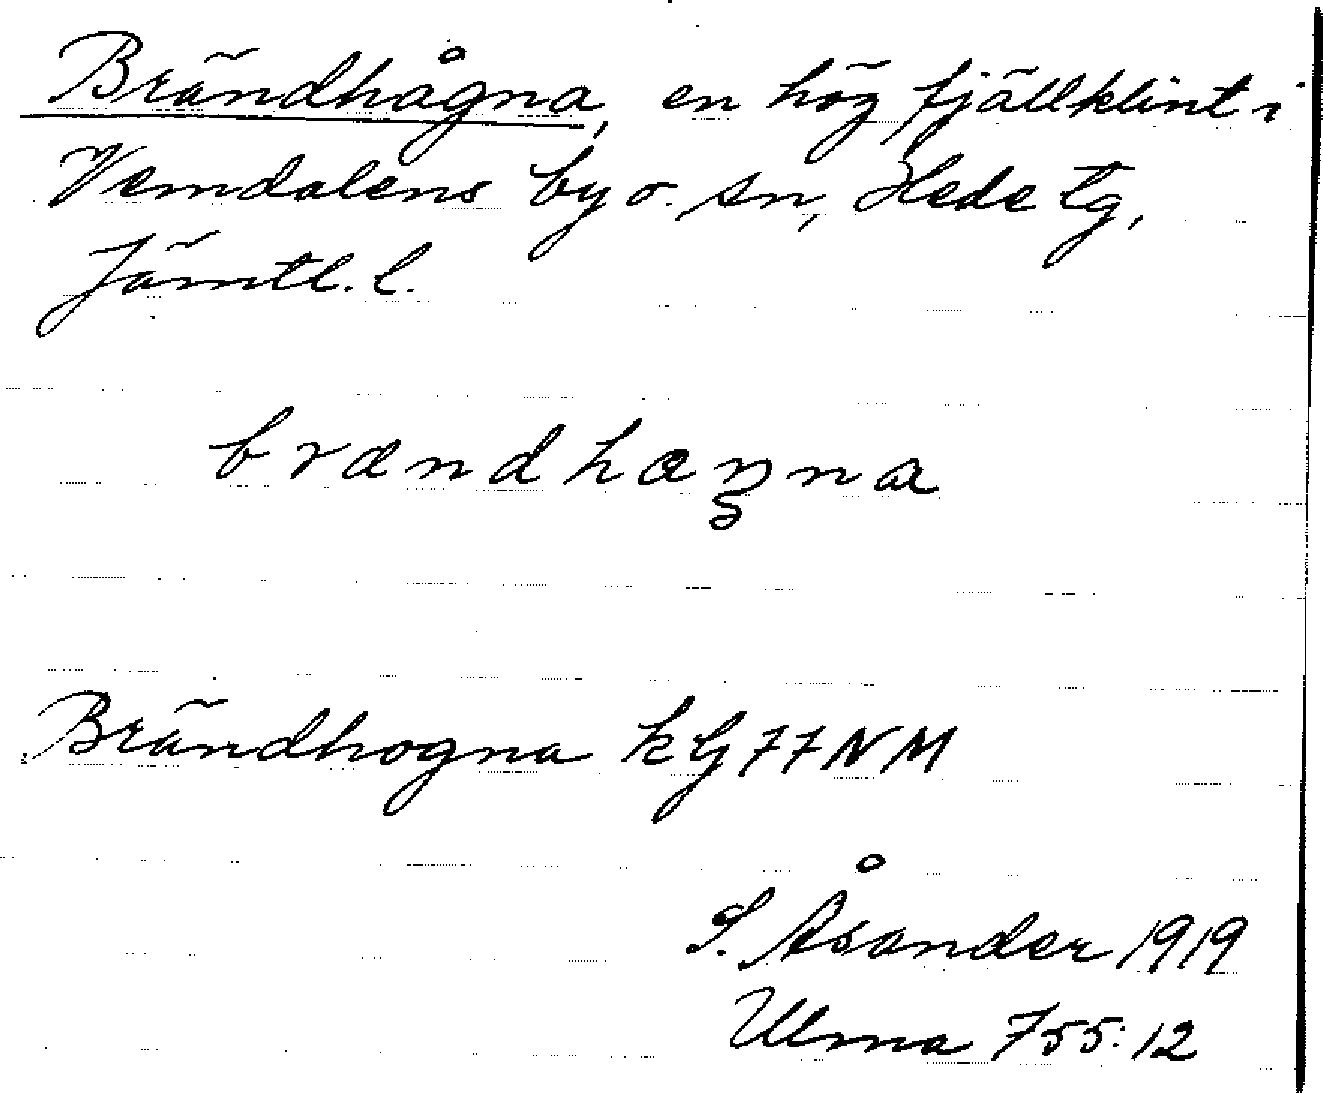 Brändhågna, en hög fjällklint i
Vemdalens by o. sn, Hede tg,
Jämtl. l.
brændhæŋna
Brändhogna kG77NM
S. Åsander 1919
Ulma 755:12